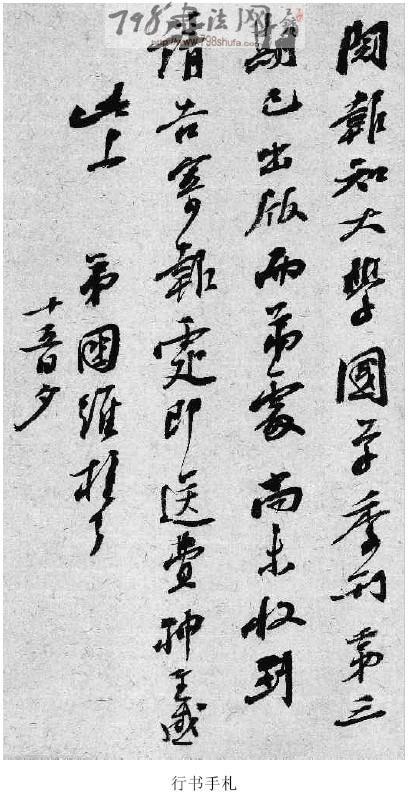 798书法网
http://www.798shufa.com
閲報知大學國学季刊第三
期已出版而弟處尚未收到
請告寄報處即送費神至感
此上 弟國維
十五日夕
行书手札